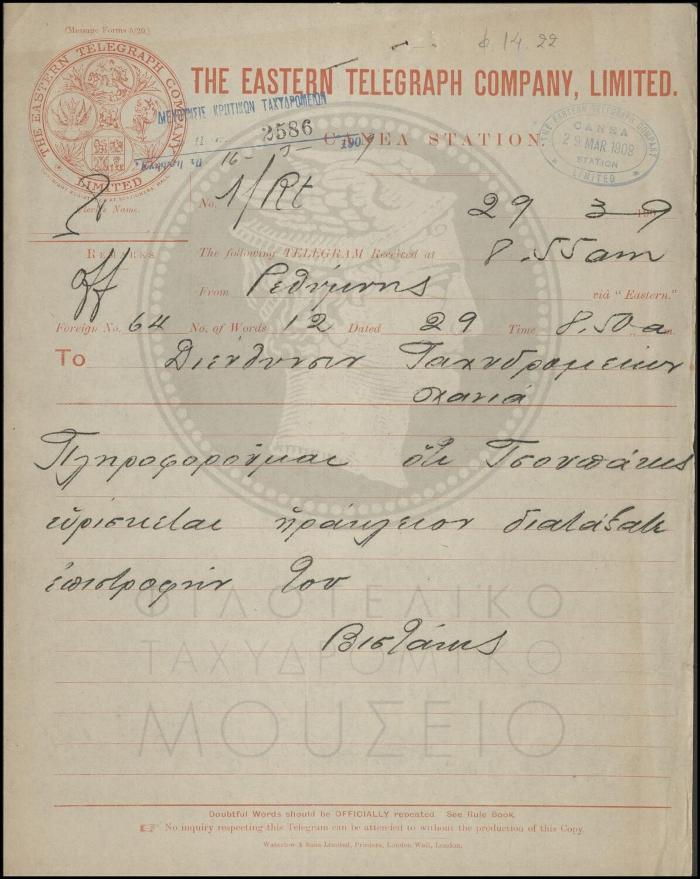 (Message Forms 5/20.)
6.14.22
THE EASTERN TELEGRAPH COMPANY
LIMITED
THE EASTERN TELEGRAPH COMPANY, LIMITED.
ΚΡΗΤΙΚΩΝ ΤΑΧΥΔΡΟΜΕΙΩΝ
2586
190
CANEA STATION.
THE EASTERN TELEGRAPH COMPANY
CANEA
29 MAR 1909
STATION
LIMITED
No. 1/Rt 29 3 9
Clerk's Name.
REMARKS
off
The following TELEGRAM Received at 8.55 am
From Ρεθύμνης viâ "Eastern."
Foreign No. 64 No. of Words 12 Dated 29 Time 8.50 a
To Διεύθυνσιν Ταχυδρομείων
Χανιά
Πληροφορούμαι ότι Τσουπάκης
ευρίσκεται ηράκλειον διατάξατε
επιστροφήν του
Βιστάκης
ΦΙΛΟΤΕΛΙΚΟ
ΤΑΧΥΔΡΟΜΙΚΟ
ΜΟΥΣΕΙΟ
Doubtful Words should be OFFICIALLY repeated. See Rule Book.
No inquiry respecting this Telegram can be attended to without the production of this Copy.
Waterlow & Sons Limited, Printers, London Wall, London.